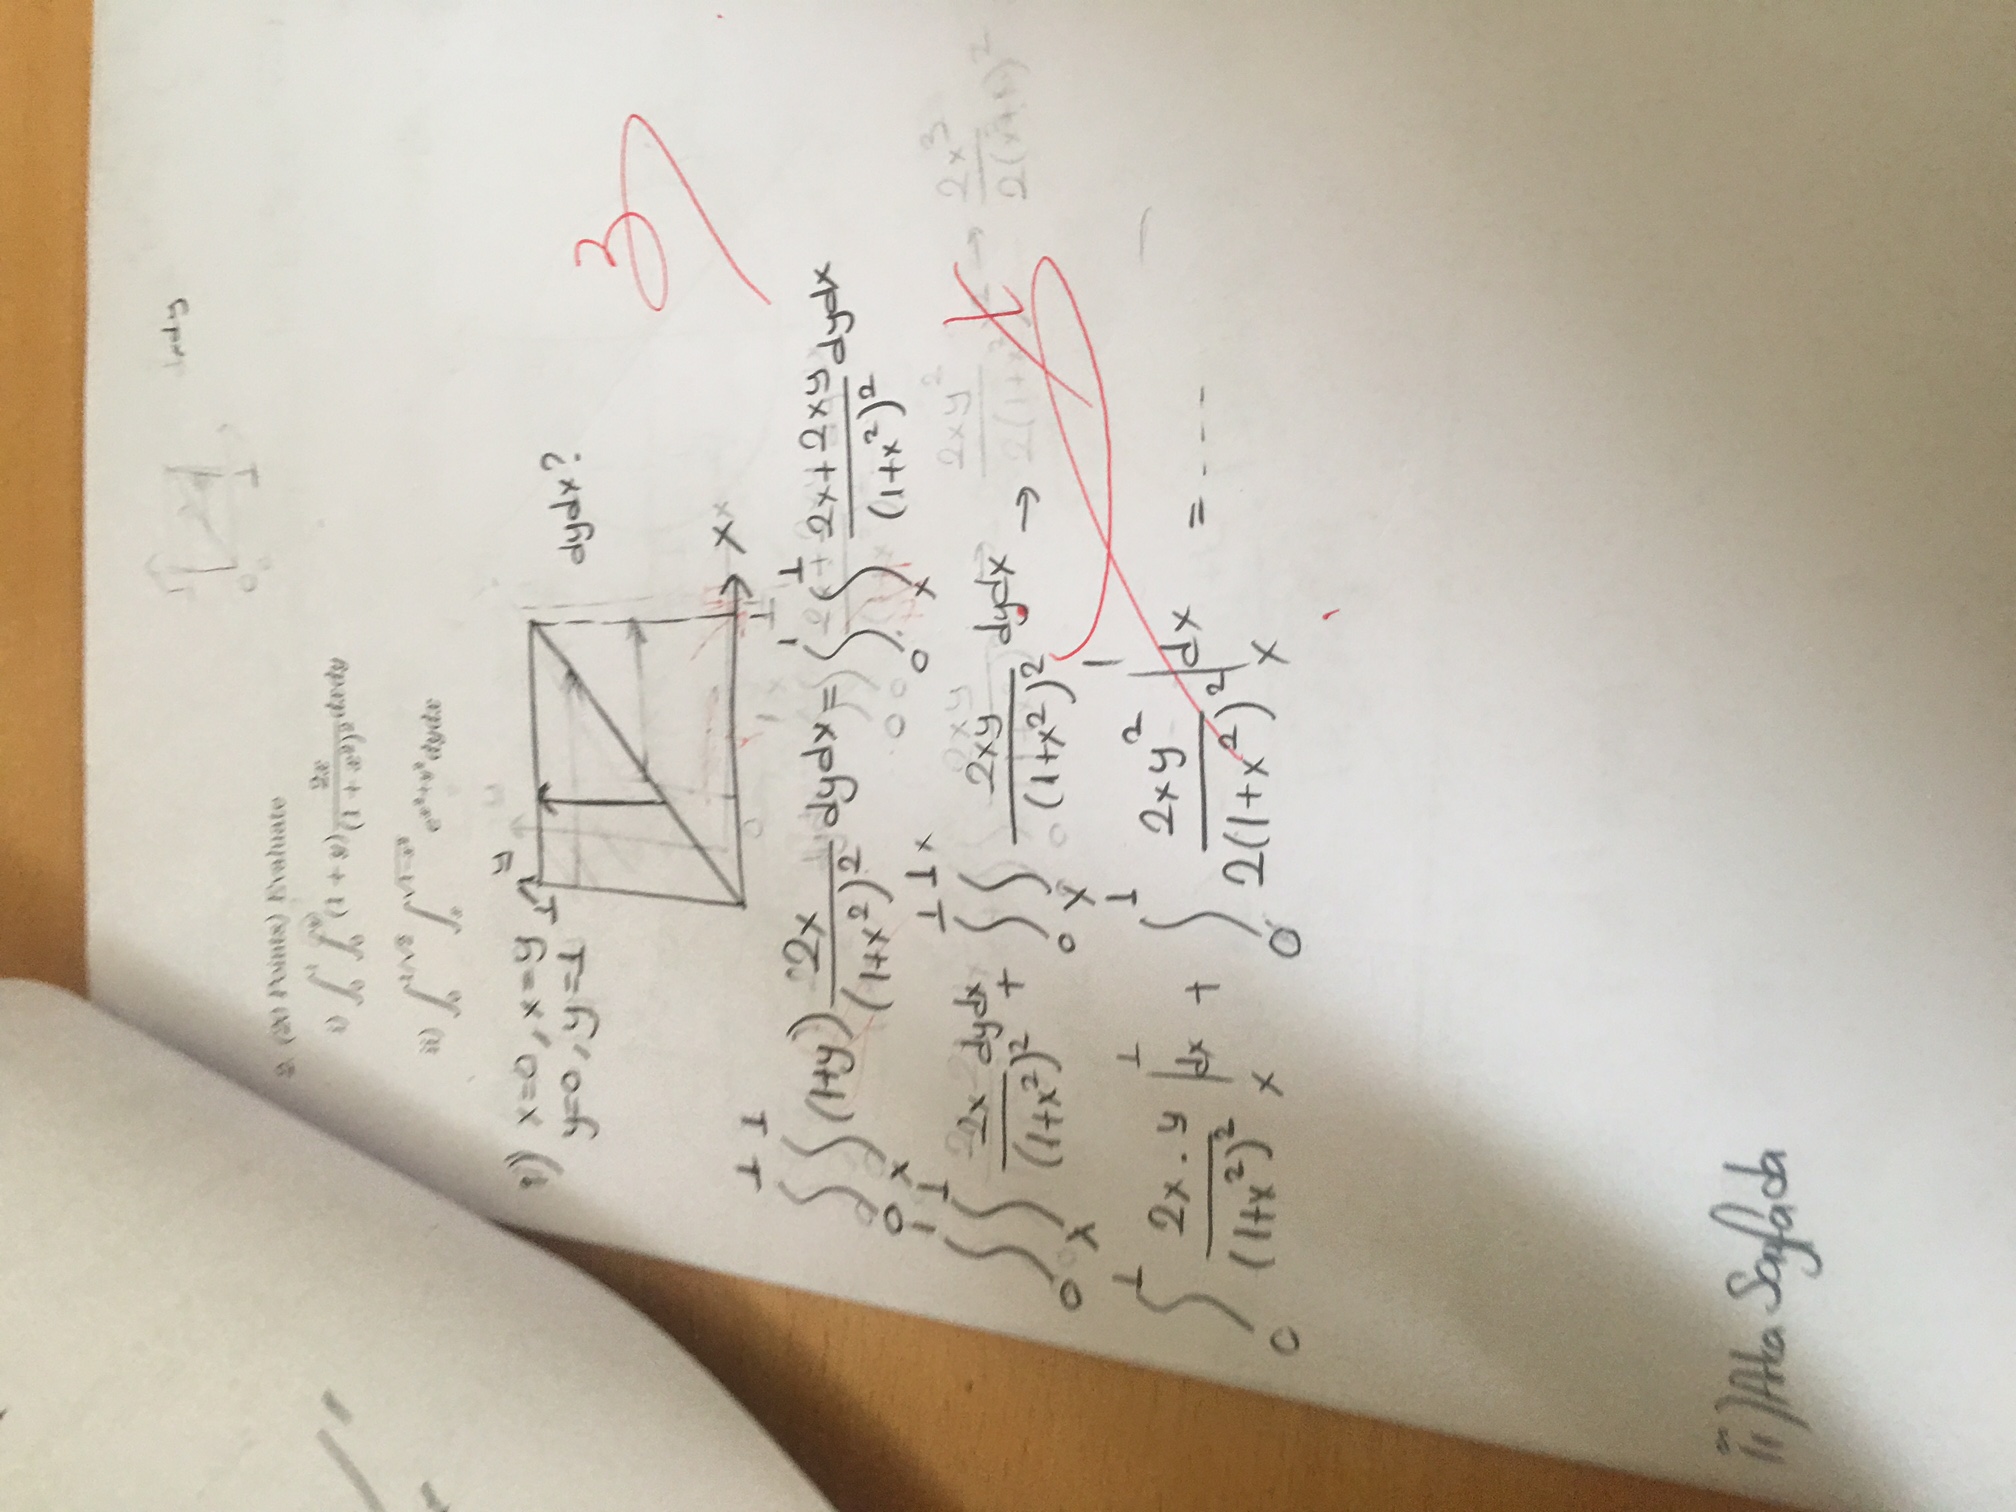 2. (20 Points) Evaluate
i) ∫_0^1 ∫_0^y (1 + y) 2x/(1 + x²)² dxdy
ii) ∫_0^{1/√2} ∫_x^{√(1-x²)} e^{x²+y²} dydx
i) x=0, x=y
y=0, y=1
y
1
dydx?
3
x
1
∫_0^1 ∫_x^1 (1+y) 2x/(1+x²)² dydx = ∫_0^1 ∫_x^1 (2x+2xy)/(1+x²)² dydx
∫_0^1 ∫_x^1 2x/(1+x²)² dydx + ∫_0^1 ∫_x^1 2xy/(1+x²)² dydx →
∫_0^1 2x.y/(1+x²)² |_x^1 dx + ∫_0^1 2xy²/2(1+x²)² |_x^1 dx = ----
ii) Arka Sayfada